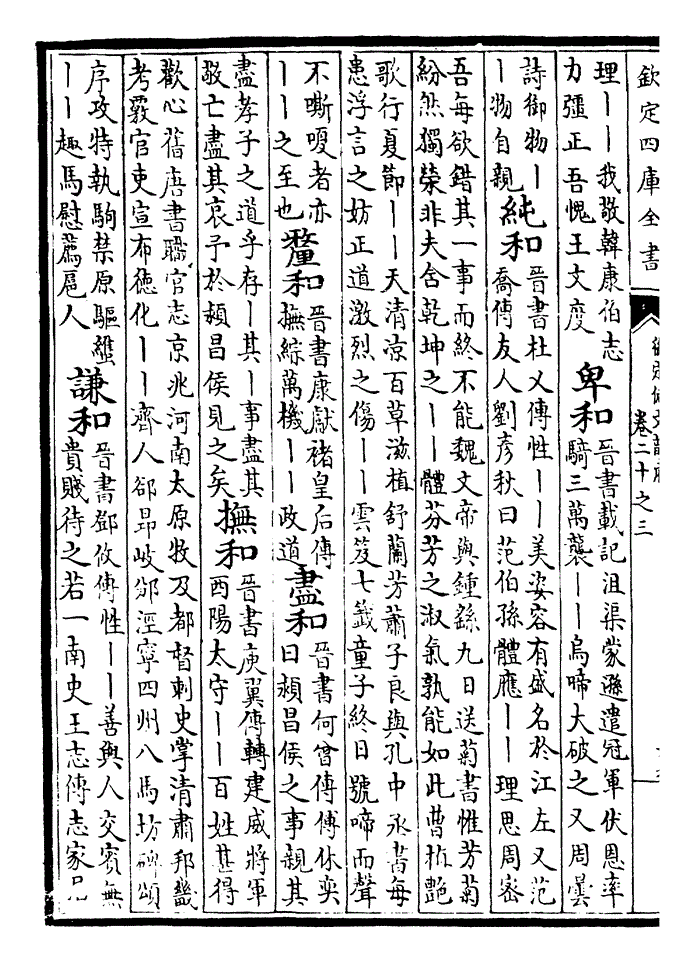 欽定四庫全書
御定佩文韻府
卷二十之三
理丨丨我敬韓康伯志
力彊正吾愧王文度
卑和
晉書載記沮渠蒙遜遣冠軍伏恩率
騎三萬襲丨丨烏啼大破之又周曇
詩御物丨
丨物自親
純和
晉書杜乂傳性丨丨美姿容有盛名於江左又范
喬傳友人劉彥秋曰范伯孫體應丨丨理思周密
吾每欲錯其一事而終不能魏文帝與鍾繇九日送菊書惟芳菊
紛然獨榮非夫含乾坤之丨丨體芬芳之淑氣孰能如此曹植艷
歌行夏節丨丨天清涼百草滋植舒蘭芳蕭子良與孔中丞書每
患浮言之妨正道激烈之傷丨丨雲笈七籤童子終日號啼而聲
不嘶嗄者亦
丨丨之至也
釐和
晉書康獻褚皇后傳
撫綜萬機丨丨政道
盡和
晉書何曾傳傅休奕
曰潁昌侯之事親其
盡孝子之道乎存丨其丨事盡其
敬亡盡其哀予於潁昌侯見之矣
撫和
晉書庾翼傳轉建威將軍
西陽太守丨丨百姓甚得
歡心舊唐書職官志京兆河南太原牧及都督刺史掌清肅邦畿
考覈官吏宣布德化丨丨齊人郤昂岐邠涇寧四州八馬坊碑頌
序攻特執駒禁原驅
丨丨趣馬慰薦扈人
謙和
晉書鄧攸傳性丨丨善與人交賓無
貴賤待之若一南史王志傳志家